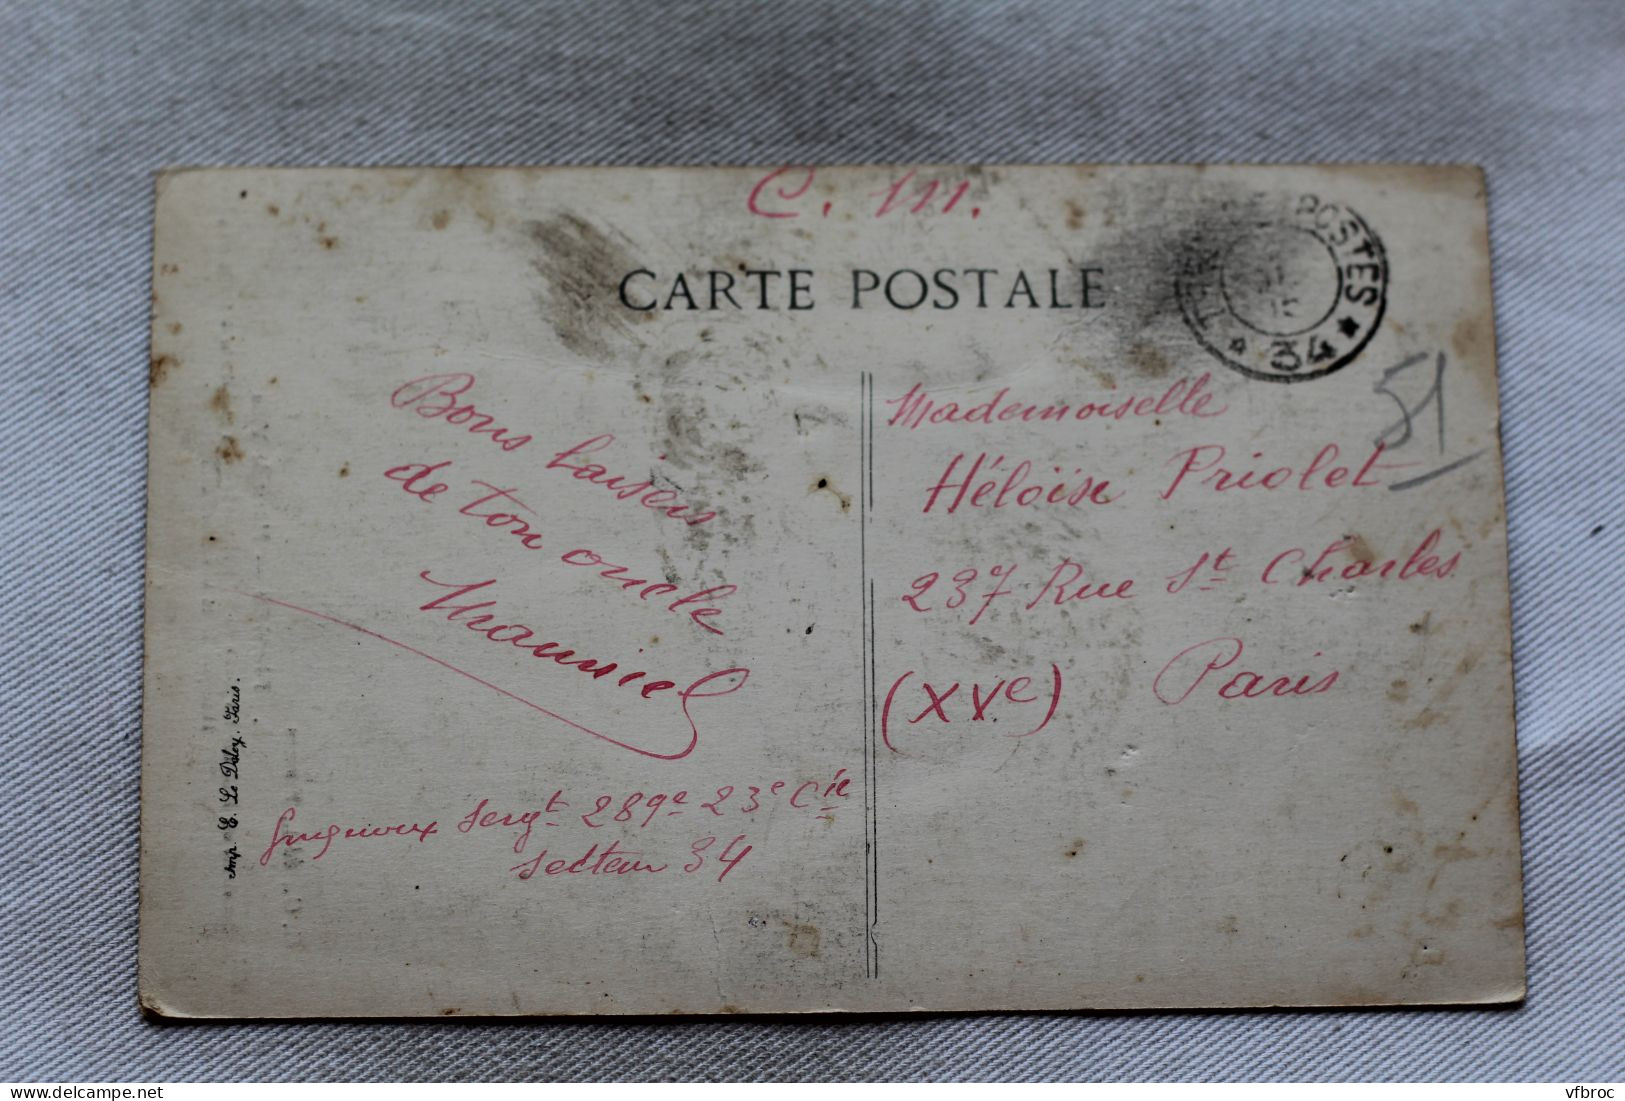 C. M.
CARTE POSTALE
POSTES
* 34 *
51
Bons baisers
de ton oncle
Maurice
Sergt 289e 23e Cie
secteur 34
Mademoiselle
Héloïse Priolet
237 Rue St Charles
(XVe) Paris
Imp. E. Le Deley, Paris.
www.delcampe.net
vfbroc